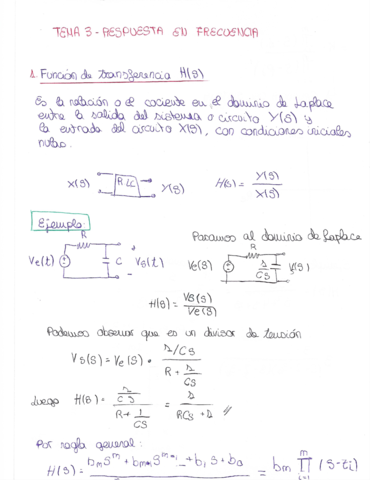 TEMA 3 - RESPUESTA EN FRECUENCIA
1. Función de transferencia H(s)
Es la relación o el cociente en el dominio de Laplace
entre la salida del sistema o circuito Y(s) y
la entrada del circuito X(s), con condiciones iniciales
nulas.
X(s) RLC Y(s) H(s) = Y(s) / X(s)
Ejemplo:
Pasamos al dominio de Laplace
R
Ve(t) C Vs(t)
+
-
R
Ve(s) 1/CS Vs(s)
H(s) = Vs(s) / Ve(s)
Podemos observar que es un divisor de tensión
Vs(s) = Ve(s) · (1/CS) / (R + 1/CS)
Luego H(s) = (1/CS) / (R + 1/CS) = 1 / (RCS + 1) //
Por regla general:
H(s) = bm s^m + bm-1 s^m-1 ... + b1 s + b0 = bm ∏ (s - zi)
m
i=1